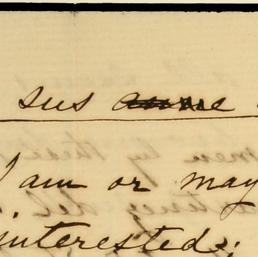 sus
I am or may
interested;